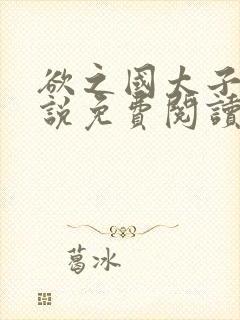 欲之國大子
說免費閱讀
葛冰